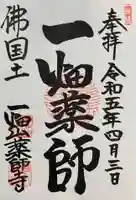 奉拝
令和五年四月三日
一畑薬師
佛国土
一畑薬師寺